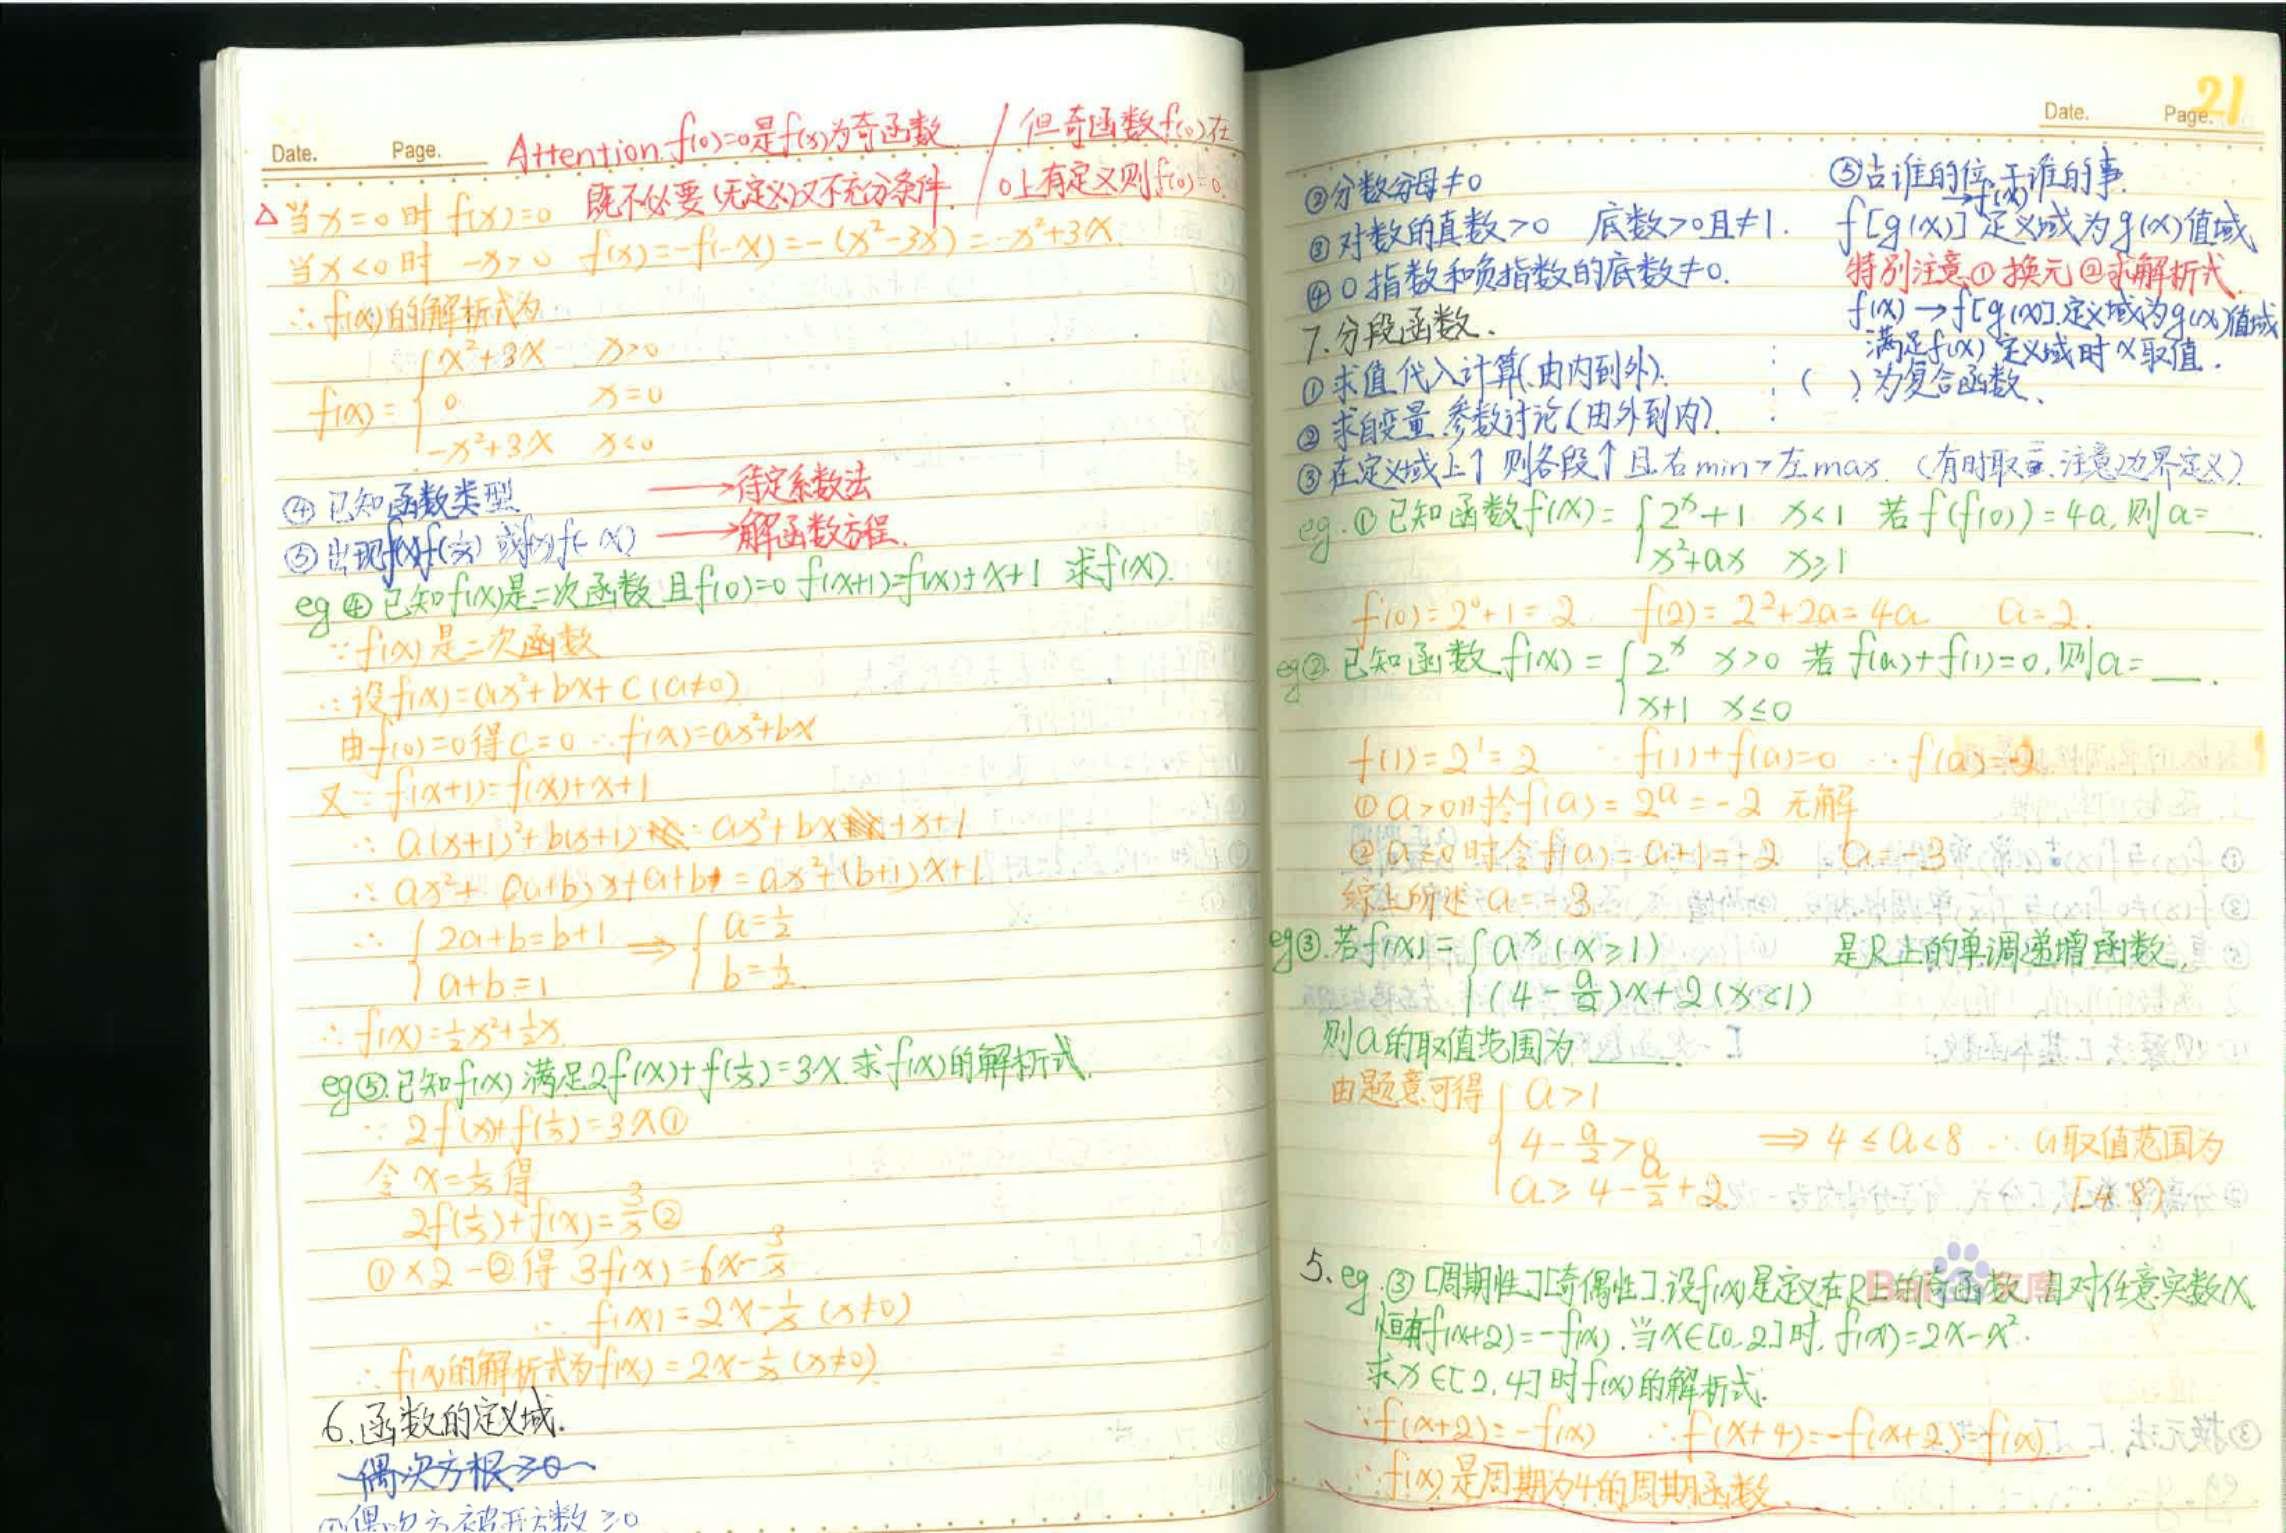 Date. Page. Attention. f(0)=0是f(x)为奇函数 / 但奇函数f(x)在
既不必要(无定义)又不充分条件. / 0上有定义则f(0)=0.
△当x=0时 f(x)=0
当x<0时 -x>0 f(x)=-f(-x)=-(x²-3x)=-x²+3x.
∴f(x)的解析式为
f(x)={ x²+3x x>0
0 x=0
-x²+3x x<0
④已知函数类型 →待定系数法
⑤出现f(x)f(1/x) 或f(x)f(-x) →解函数方程.
eg④已知f(x)是二次函数且f(0)=0 f(x+1)=f(x)+x+1 求f(x).
∵f(x)是二次函数
∴设f(x)=ax²+bx+c(a≠0)
由f(0)=0得c=0∴f(x)=ax²+bx
又∵f(x+1)=f(x)+x+1
∴a(x+1)²+b(x+1)=ax²+bx+x+1
∴ax²+(2a+b)x+a+b=ax²+(b+1)x+1
∴{ 2a+b=b+1 ⇒ { a=1/2
a+b=1 b=1/2.
∴f(x)=1/2x²+1/2x.
eg⑤.已知f(x)满足2f(x)+f(1/x)=3x.求f(x)的解析式.
∵2f(x)+f(1/x)=3x①
令x=1/x得
2f(1/x)+f(x)=3/x②
①×2-②得 3f(x)=6x-3/x
∴f(x)=2x-1/x(x≠0)
∴f(x)的解析式为f(x)=2x-1/x(x≠0).
6.函数的定义域.
偶次方根≥0
①偶次方被开方数≥0
21
Date. Page.
②分数分母≠0
③对数的真数>0 底数>0且≠1.
④0指数和负指数的底数≠0.
⑤占谁的位干谁的事.
→f(x)
f[g(x)]定义域为g(x)值域
特别注意①换元②求解析式.
f(x)→f[g(x)].定义域为g(x)值域
满足f(x)定义域时x取值.
( )为复合函数.
7.分段函数.
①求值代入计算(由内到外).
②求自变量.参数讨论(由外到内).
③在定义域上↑则各段↑且右min>左max.(有时取=.注意边界定义)
eg.①已知函数f(x)={ 2^x+1 x<1 若f(f(0))=4a,则a=__.
x²+ax x≥1
f(0)=2⁰+1=2 f(2)=2²+2a=4a a=2.
eg②.已知函数f(x)={ 2^x x>0 若f(a)+f(1)=0,则a=__.
x+1 x≤0
f(1)=2¹=2 ∵f(1)+f(a)=0 ∴f(a)=-2
①a>0时令f(a)=2^a=-2 无解
②a≤0时令f(a)=a+1=-2 a=-3
综上所述a=-3
eg③.若f(x)={ a^x(x≥1) 是R上的单调递增函数,
(4-a/2)x+2(x<1)
则a的取值范围为____.
由题意可得{ a>1
4-a/2>0 ⇒4≤a<8 ∴a取值范围为
a≥4-a/2+2 [4,8)
5.eg.③[周期性][奇偶性].设f(x)是定义在R上的奇函数 且对任意实数x
恒有f(x+2)=-f(x).当x∈[0.2]时,f(x)=2x-x².
求x∈[2,4]时f(x)的解析式.
∵f(x+2)=-f(x) ∴f(x+4)=-f(x+2)=f(x)
∴f(x)是周期为4的周期函数